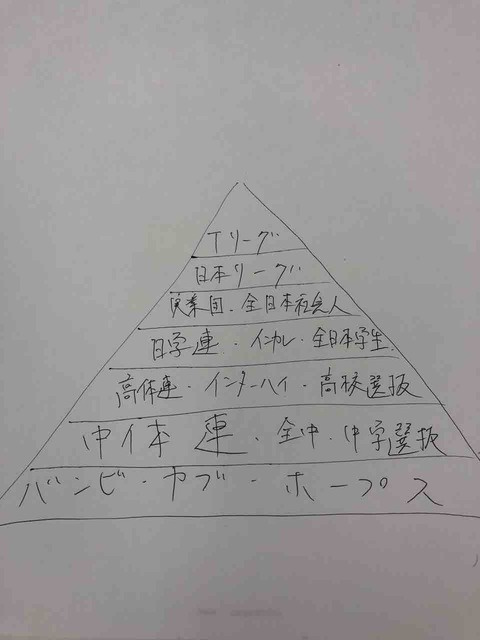 Tリーグ
日本リーグ
実業団、全日本社会人
日学連・インカレ・全日本学生
高体連・インターハイ・高校選抜
中体連、全中、中学選抜
バンビ・カブ・ホープス